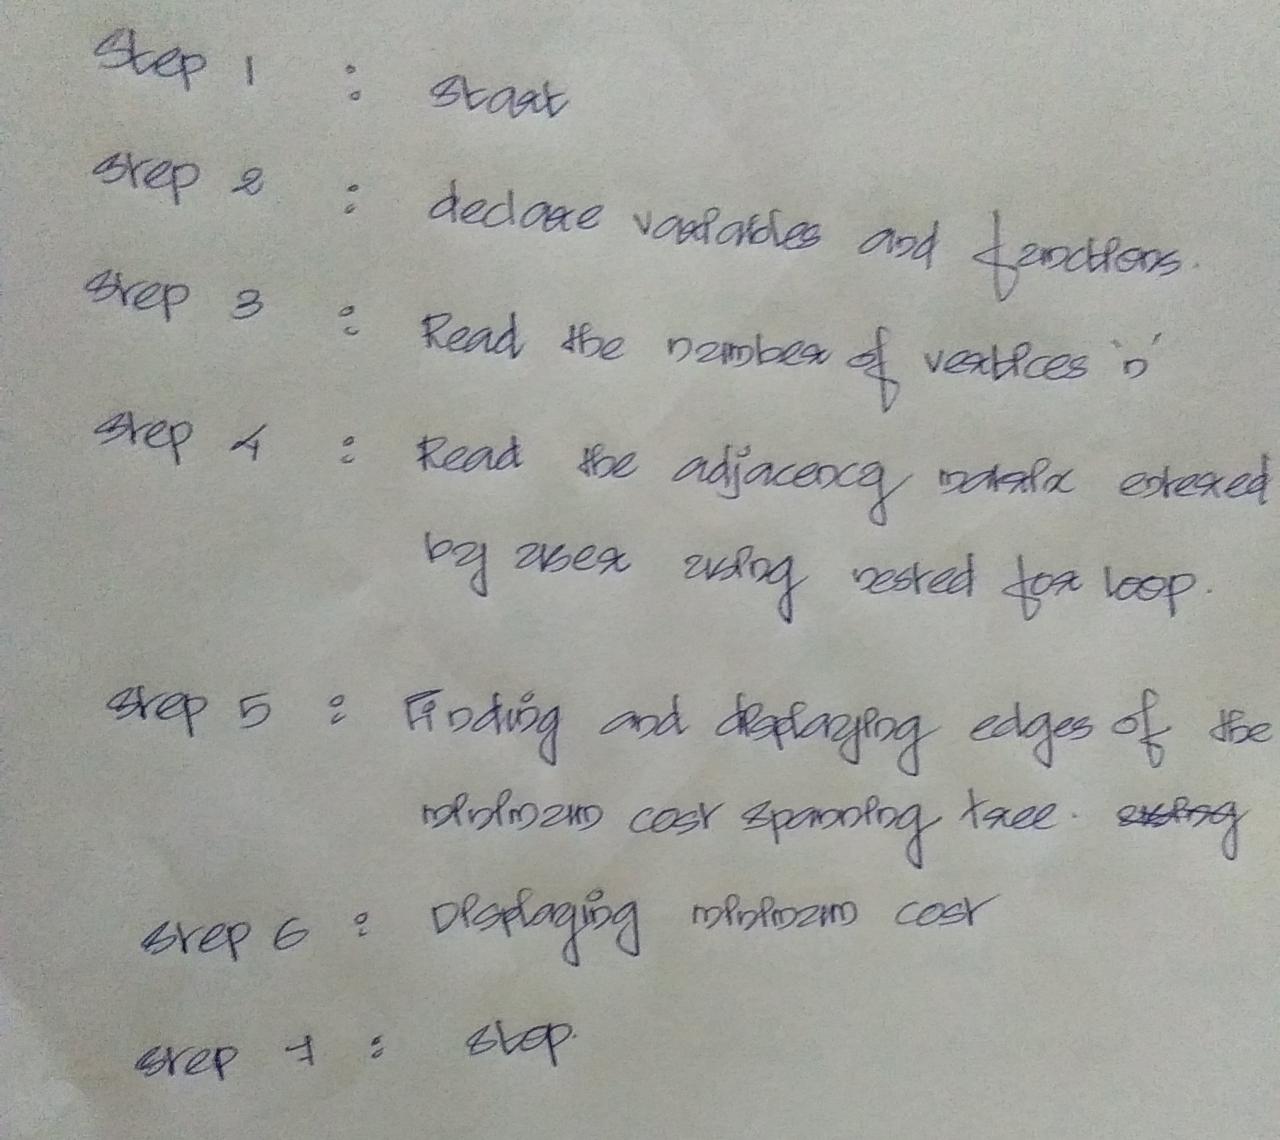 Step 1 : Start
Step 2 : declare variables and functions.
Step 3 : Read the number of vertices 'n'
Step 4 : Read the adjacency matrix entered
by user using nested for loop.
Step 5 : Finding and displaying edges of the
minimum cost spanning tree. using
Step 6 : Displaying minimum cost
Step 7 : Stop.